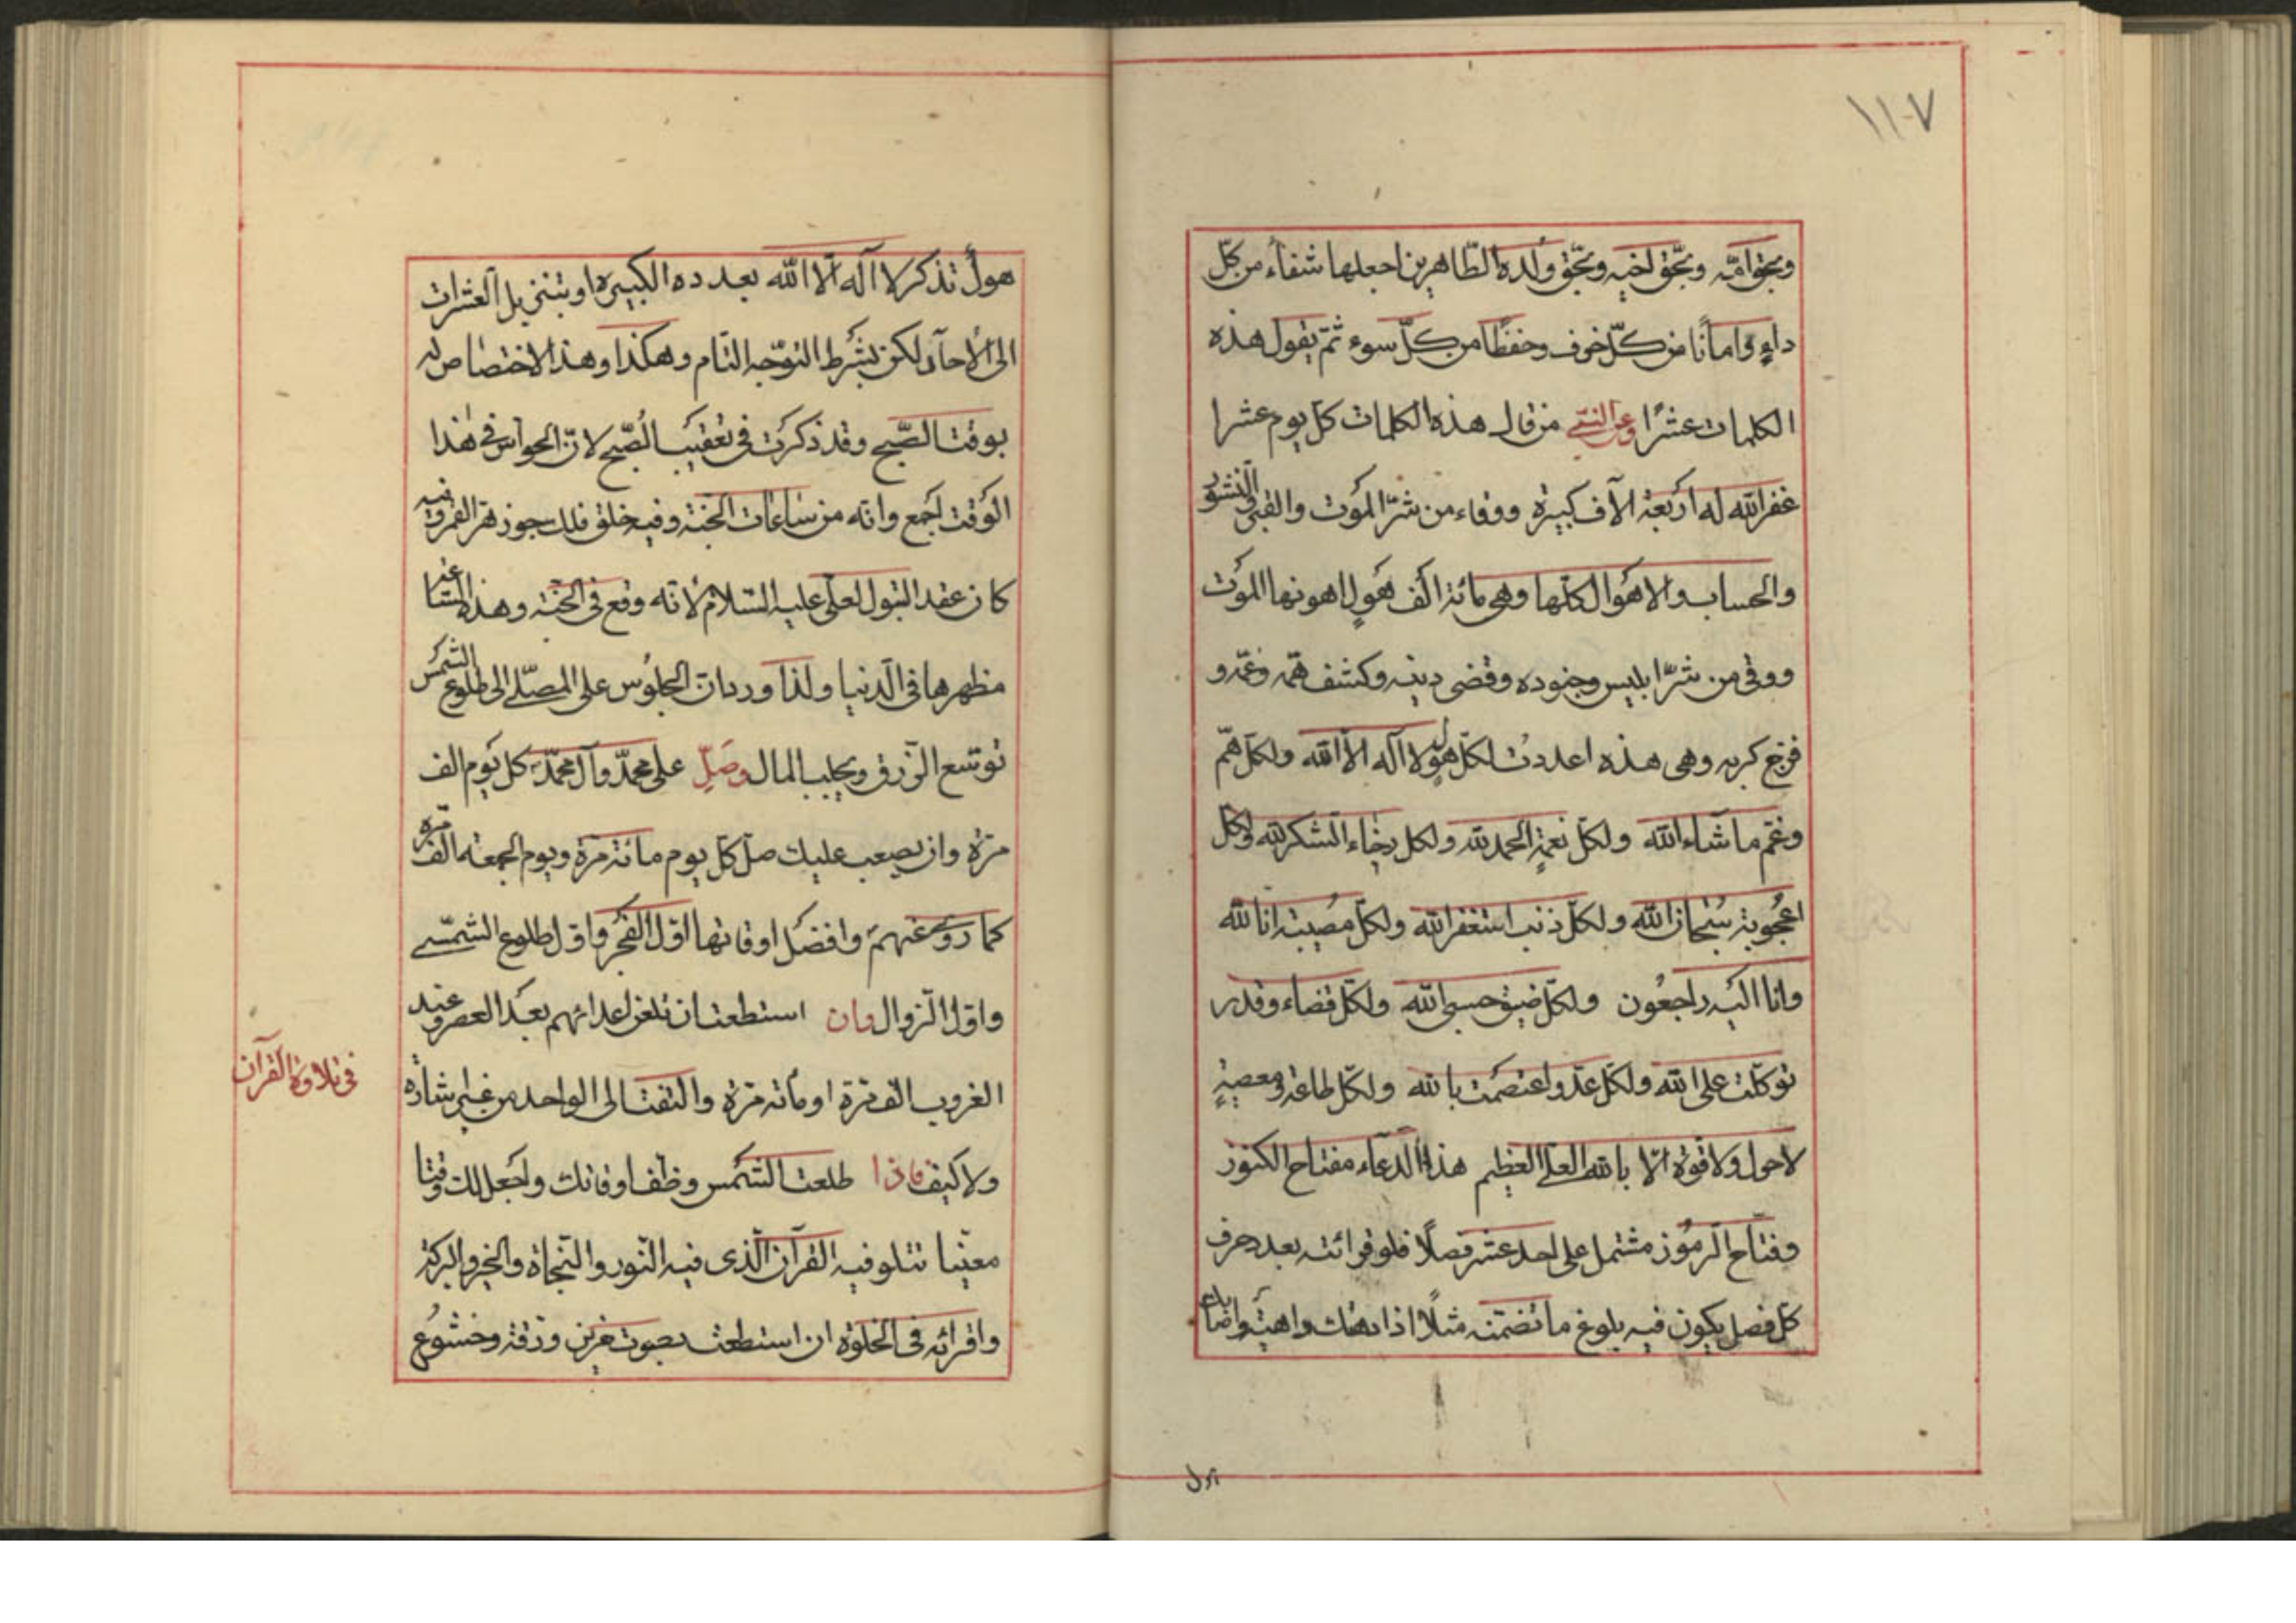 ١١٠٧
وبحق امّه وبحّق اخيه وبحّق وُلده الطّاهرين اجعلها شفاءً من كلّ
داءٍ وامانًا من كلّ خوف وحفظًا من كلّ سوء ثمّ يقول هذه
الكلمات عشرًا وعن النبّي من قال هذه الكلمات كل يوم عشرا
غفر الله له اربعة الآف كبيرة ووقاء من شرّ الموت والقبر والنشور
والحساب والاهوال كلّها وهي مائة الف هَولٍ اهونها الموت
ووقى من شرّ ابليس وجنوده وقضى دينه وكشف همّه وغمّه و
فرّج كربه وهى هذه اعددت لكلّ هولٍ لا اله الّا الله ولكلّ همّ
وغمّ ما شاء الله ولكلّ نعمةٍ الحمد لله ولكل رخاء الشكر لله ولكل
اعجُوبة سُبحان الله ولكلّ ذنب استغفر الله ولكلّ مُصيبة انا لله
وانا اليه راجعُون ولكلّ ضيق حسبى الله ولكلّ قضاء وقدر
توكّلت على الله ولكلّ عدّو اعتصمت بالله ولكلّ طاعة ومعصيةٍ
لا حول ولا قوّة الّا بالله العلىّ العظيم هذا الدّعاء مفتاح الكنوز
وفتّاح الرموز مشتمل على احد عشر فصلًا فلو قرائته بعدد حرف
كلّ فصل يكون فيه بلوغ ما تضمّنه مثلًا اذا
هولٌ تذكر لا اله الّا الله بعدده الكبير او بتنزيل العشرات
الى الأحاد لكن بشرط التوّجه التام وهكذا وهذا الاختصاص له
بوقت الصّبح وقد ذكرت في تعقيب الصّبح لانّ الحواس في هذا
الوقت اجمع وانّه من ساعات الجنّة وفيه خلق فلك جوزهر القمر وفيه
كان عقد البتول لعلى عليه السّلام لانّه وقع في الجنّة وهذه السّاعة
مظهرها في الدنيا ولذا ورد انّ الجلوُس على المصلّى الى طلوع الشّمس
توّسع الرّزق ويجلب المال وصَلِّ على محمّد وآل محمّد كل يوم الف
مرّة وان يصعب عليك صلّ كلّ يوم مائة مرّة ويوم الجمعة الف مرّة
كما روى عنهم وافضل اوقاتها اوّل الفجر واوّل طلوع الشّمس
واوّل الزوال وان استطعت ان تلعن اعدائهم بعد العصر وعند
الغروب الف مرّة او مائة مرّة والتفت الى الواحد من غير اشارة
ولا كيف فاذا طلعت الشّمس وظّف اوقاتك واجعل لك وقتا
معيّنا تتلو فيه القرآن الّذى فيه النّور والنّجاة والخير والبركة
واقرائه فى الخلوة ان استطعت بصوت حزين ورقّة وخشوُع
فى تلاوة القرآن